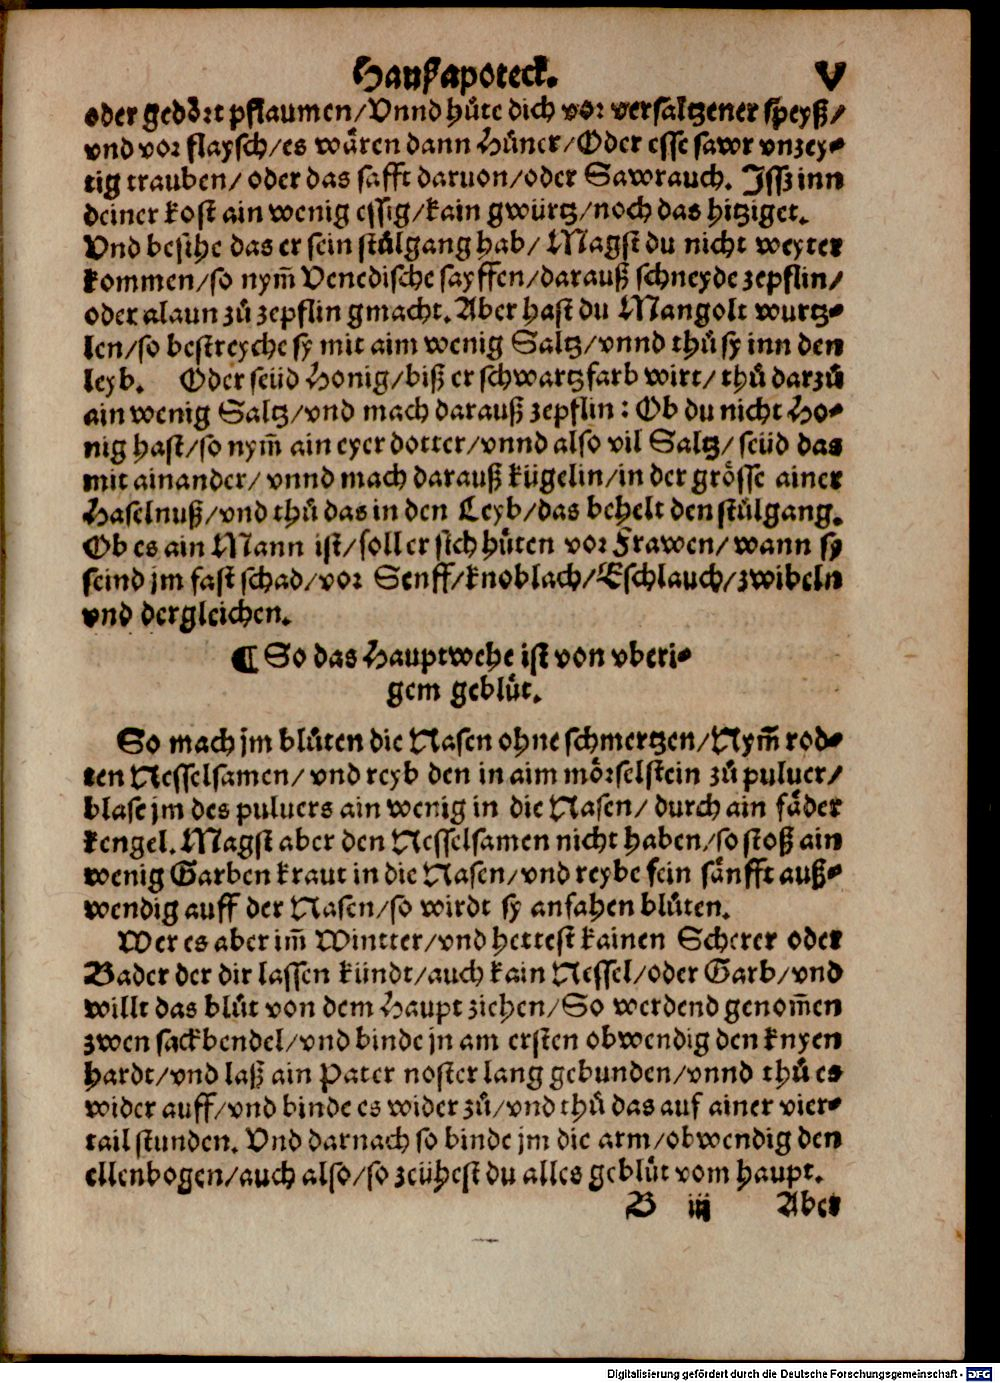 Haußapoteck. V
oder gedört pflaumen/Vnnd hůte dich vor versaltzener speyß/
vnd vor flaysch/es wären dann Hůner/Oder esse sawr vnzey-
tig trauben/oder das safft daruon/oder Sawrauch. Jss inn
deiner kost ain wenig essig/kain gwürtz/noch das hitziget.
Vnd besihe das er sein stůlgang hab/Magst du nicht weyter
kommen/so nym̃ Venedische sayffen/darauß schneyde zepflin/
oder alaun zů zepflin gmacht. Aber hast du Mangolt wurtz-
len/so bestreyche sy mit aim wenig Saltz/vnnd thů sy inn den
leyb. Oder seüd Honig/biß er schwartzfarb wirt/thů darzů
ain wenig Saltz/vnd mach darauß zepflin: Ob du nicht Ho-
nig hast/so nym̃ ain eyer dotter/vnnd also vil Saltz/seüd das
mit ainander/vnnd mach darauß kügelin/in der grösse ainer
Haselnuß/vnd thů das in den Leyb/das behelt den stůlgang.
Ob es ain Mann ist/soll er sich hůten vor Frawen/wann sy
seind jm fast schad/vor Senff/knoblach/Eschlauch/zwibeln
vnd dergleichen.
¶ So das Hauptwehe ist von vberi-
gem geblůt.
So mach jm blůten die Nasen ohne schmertzen/Nym̃ rod-
ten Nesselsamen/vnd reyb den in aim mörselstein zů puluer/
blase jm des puluers ain wenig in die Nasen/durch ain fäder
kengel. Magst aber den Nesselsamen nicht haben/so stoß ain
wenig Garben kraut in die Nasen/vnd reybe sein sänfft auß-
wendig auff der Nasen/so wirdt sy anfahen blůten.
Wer es aber im̃ Wintter/vnd hettest kainen Scherer oder
Bader der dir lassen kündt/auch kain Nessel/oder Garb/vnd
willt das blůt von dem Haupt ziehen/So werdend genom̃en
zwen sackbendel/vnd binde jn am ersten obwendig den knyen
hardt/vnd laß ain Pater noster lang gebunden/vnnd thů es
wider auff/vnd binde es wider zů/vnd thů das auf ainer vier-
tail stunden. Vnd darnach so binde jm die arm/obwendig den
ellenbogen/auch also/so zeühest du alles geblůt vom haupt.
B iij Aber
Digitalisierung gefördert durch die Deutsche Forschungsgemeinschaft - DFG